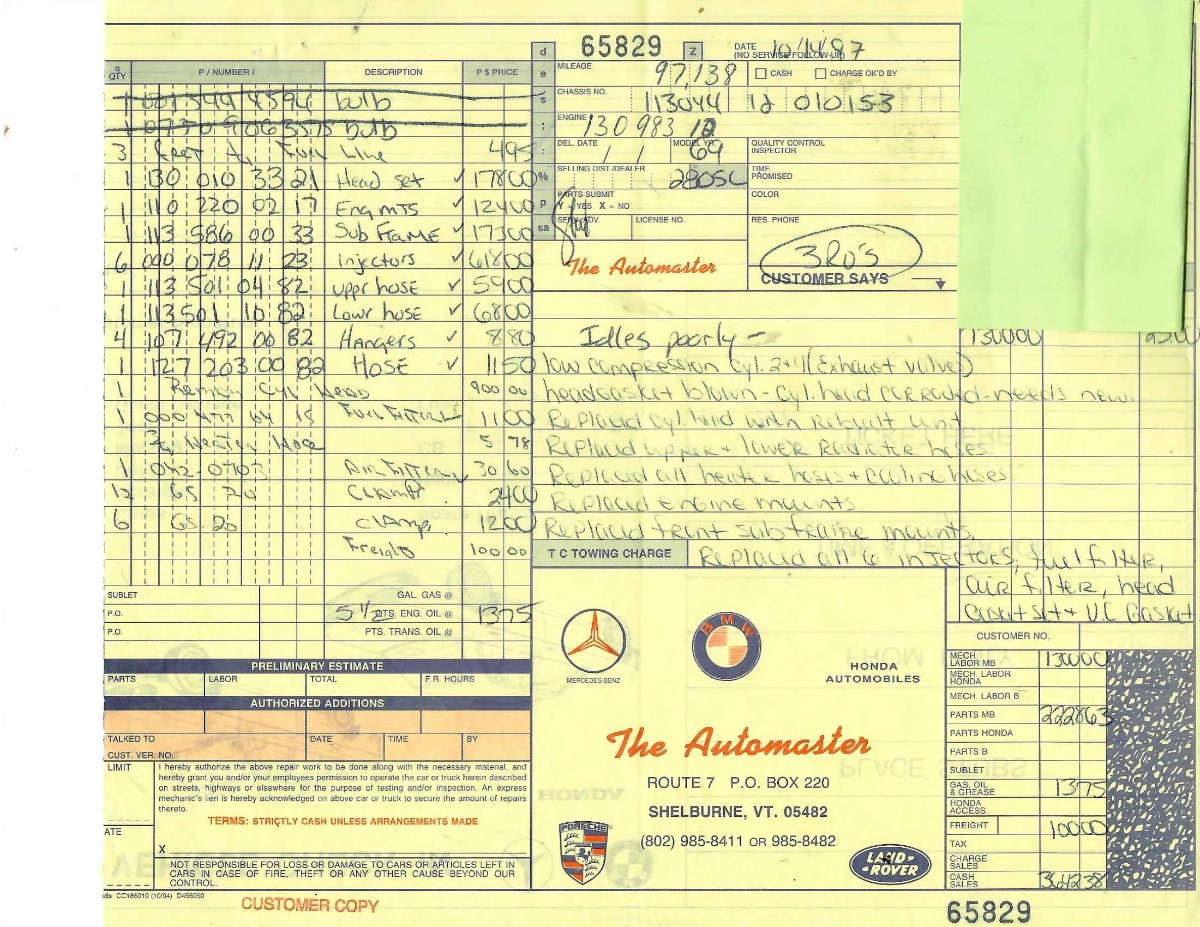 65829
d
e
s
:
:
%
p
sa
z
DATE 10/14/97
(NO SERVICE FOLLOW-UP)
MILEAGE 97,138
CASH
CHARGE OK'D BY
CHASSIS NO. 113044 12 010153
ENGINE 130 983 12
DEL. DATE / /
MODEL YR. 69
QUALITY CONTROL
INSPECTOR
SELLING DIST./DEALER 280SL
TIME
PROMISED
PARTS SUBMIT
Y = YES X = NO
COLOR
SERV. ADV.
LICENSE NO.
RES. PHONE
3RO's
The Automaster
CUSTOMER SAYS
q
QTY P / NUMBER / DESCRIPTION P $ PRICE
1 001 544 4594 bulb
bulb
3 Feet Fuel line 495
1 130 010 33 21 Head set ✓ 17800
1 110 220 02 17 Eng mts ✓ 12400
1 113 586 00 33 Sub Frame ✓ 17300
6 000 078 11 23 injectors ✓ 61800
1 113 501 04 82 uppr hose ✓ 5900
1 113 501 10 82 Lowr hose ✓ 6800
4 107 492 00 82 Hangers ✓ 880
1 127 203 00 82 HOSE ✓ 1150
1 Reman Cyl Head 900 00
1 000 477 64 15 Fuel Filter 1100
Heater Hose 5 78
1 042-0703 Air Filter 30 60
12 GS 20 Clamps 2400
6 GS-20 Clamps 1200
Freight 100 00
Idles poorly -
130000
low compression cyl. 2+4 (Exhaust valves)
headgasket blown - Cyl. head corroded - needs new.
Replaced cyl. head with Rebuilt unit
Replaced upper + lower Radiator hoses.
Replaced all heater hoses + cooling hoses
Replaced Engine mounts
Replaced front subframe mounts,
T C TOWING CHARGE
Replaced all 6 injectors, fuel filter,
air filter, head
Gasket set + V.C Gasket
SUBLET
P.O.
P.O.
GAL. GAS @
5 1/2 QTS. ENG. OIL @ 1375
PTS. TRANS. OIL @
PRELIMINARY ESTIMATE
PARTS LABOR TOTAL F.R. HOURS
AUTHORIZED ADDITIONS
TALKED TO DATE TIME BY
CUST. VER. NO.
LIMIT
I hereby authorize the above repair work to be done along with the necessary material, and
hereby grant you and/or your employees permission to operate the car or truck herein described
on streets, highways or elsewhere for the purpose of testing and/or inspection. An express
mechanic's lien is hereby acknowledged on above car or truck to secure the amount of repairs
thereto.
TERMS: STRICTLY CASH UNLESS ARRANGEMENTS MADE
ATE
X
NOT RESPONSIBLE FOR LOSS OR DAMAGE TO CARS OR ARTICLES LEFT IN
CARS IN CASE OF FIRE, THEFT OR ANY OTHER CAUSE BEYOND OUR
CONTROL.
CC186010 (10/94) D456050
CUSTOMER COPY
MERCEDES-BENZ
BMW
HONDA
AUTOMOBILES
The Automaster
ROUTE 7 P.O. BOX 220
SHELBURNE, VT. 05482
(802) 985-8411 OR 985-8482
PORSCHE
LAND-ROVER
CUSTOMER NO.
MECH.
LABOR MB 130000
MECH. LABOR
HONDA
MECH. LABOR B
PARTS MB 222863
PARTS HONDA
PARTS B
SUBLET
GAS, OIL
& GREASE 1375
HONDA
ACCESS.
FREIGHT 10000
TAX
CHARGE
SALES
CASH
SALES 364238
65829